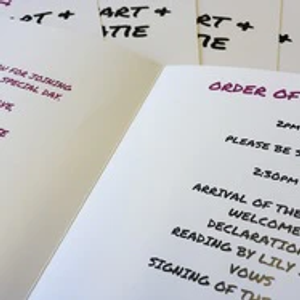 ART +
ART +
TIE
ATIE
FOR JOINING
SPECIAL DAY,
ORDER OF
2PM
PLEASE BE
2:30PM
ARRIVAL OF THE
WELCOME
DECLARATION
READING BY LILY
VOWS
SIGNING OF THE